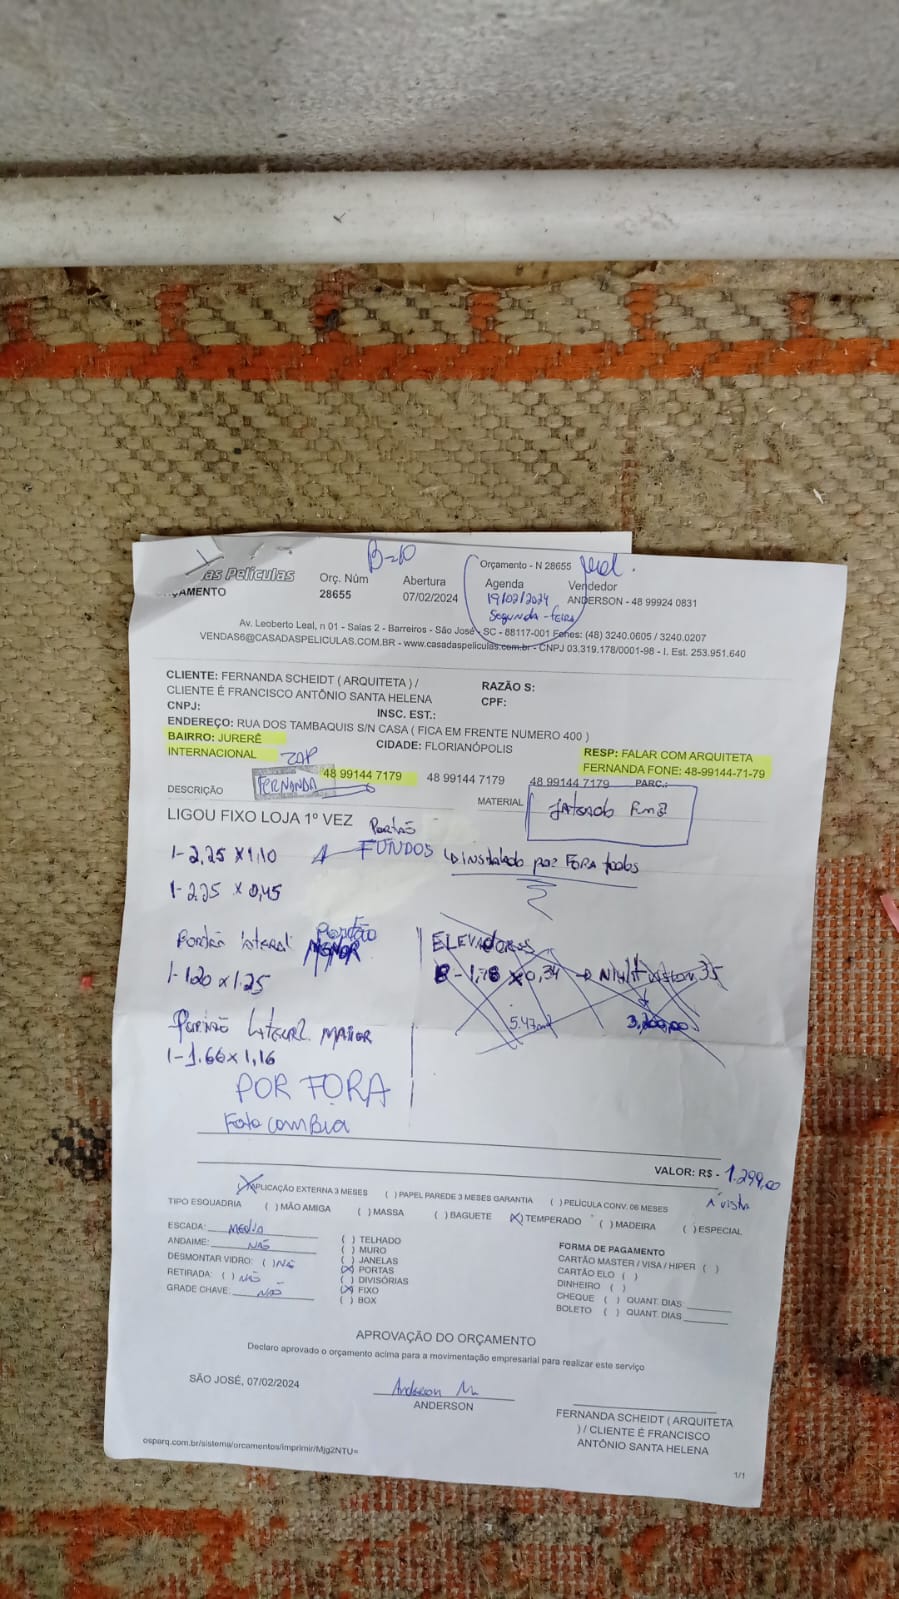 B=10
as Películas
ÇAMENTO
Orç. Núm
28655
Abertura
07/02/2024
Orçamento - N 28655
Agenda
19/02/2024
Segunda-feira
Vendedor
ANDERSON - 48 99924 0831
Av. Leoberto Leal, n 01 - Salas 2 - Barreiros - São José - SC - 88117-001 Fones: (48) 3240.0605 / 3240.0207
VENDAS6@CASADASPELICULAS.COM.BR - www.casadaspeliculas.com.br - CNPJ 03.319.178/0001-98 - I. Est. 253.951.640
CLIENTE: FERNANDA SCHEIDT ( ARQUITETA ) /
CLIENTE É FRANCISCO ANTÔNIO SANTA HELENA
RAZÃO S:
CPF:
CNPJ:
INSC. EST.:
ENDEREÇO: RUA DOS TAMBAQUIS S/N CASA ( FICA EM FRENTE NUMERO 400 )
BAIRRO: JURERÊ
INTERNACIONAL
CIDADE: FLORIANÓPOLIS
RESP: FALAR COM ARQUITETA
FERNANDA FONE: 48-99144-71-79
ZAP
FERNANDA
48 99144 7179
48 99144 7179
48 99144 7179
PARC.:
DESCRIÇÃO
MATERIAL
Jateado
LIGOU FIXO LOJA 1º VEZ
Portão
FUNDOS
instalado por FORA todos
1-2,25 x 1,10
1-2,25 x 0,45
Portão lateral
Portão
MENOR
1-1,20 x 1,25
Portão lateral MAIOR
1-1.66 x 1,16
POR FORA
ELEVADORES
8-1,78 x 0,34 → Night vision 35
5.47m²
3.200,00
VALOR: R$ - 1.299,00
à vista
APLICAÇÃO EXTERNA 3 MESES ( ) PAPEL PAREDE 3 MESES GARANTIA ( ) PELÍCULA CONV. 06 MESES
TIPO ESQUADRIA ( ) MÃO AMIGA ( ) MASSA ( ) BAGUETE (X) TEMPERADO ( ) MADEIRA ( ) ESPECIAL
ESCADA: MEDIA
ANDAIME: NÃO
DESMONTAR VIDRO: ( ) NÃO
RETIRADA: ( ) NÃO
GRADE CHAVE: NÃO
( ) TELHADO
( ) MURO
( ) JANELAS
(X) PORTAS
( ) DIVISÓRIAS
(X) FIXO
( ) BOX
FORMA DE PAGAMENTO
CARTÃO MASTER / VISA / HIPER ( )
CARTÃO ELO ( )
DINHEIRO ( )
CHEQUE ( ) QUANT. DIAS
BOLETO ( ) QUANT. DIAS
APROVAÇÃO DO ORÇAMENTO
Declaro aprovado o orçamento acima para a movimentação empresarial para realizar este serviço
SÃO JOSÉ, 07/02/2024
Anderson M.
ANDERSON
FERNANDA SCHEIDT ( ARQUITETA
) / CLIENTE É FRANCISCO
ANTÔNIO SANTA HELENA
osparq.com.br/sistema/orcamentos/imprimir/Mjg2NTU=
1/1